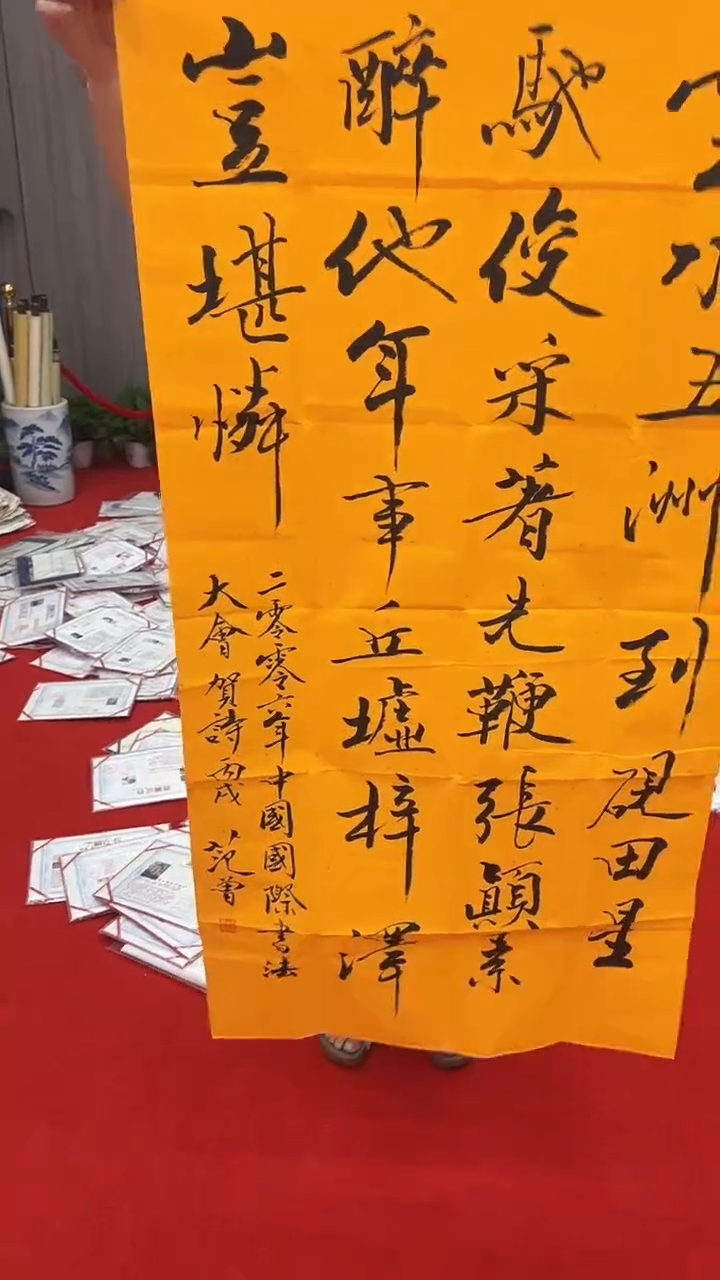 水五洲到硯田星
馳俊采著先鞭張顛素
醉他年事丘墟梓澤
豈堪憐
二零零六年中國國際書法
大會賀詩丙戌範曾